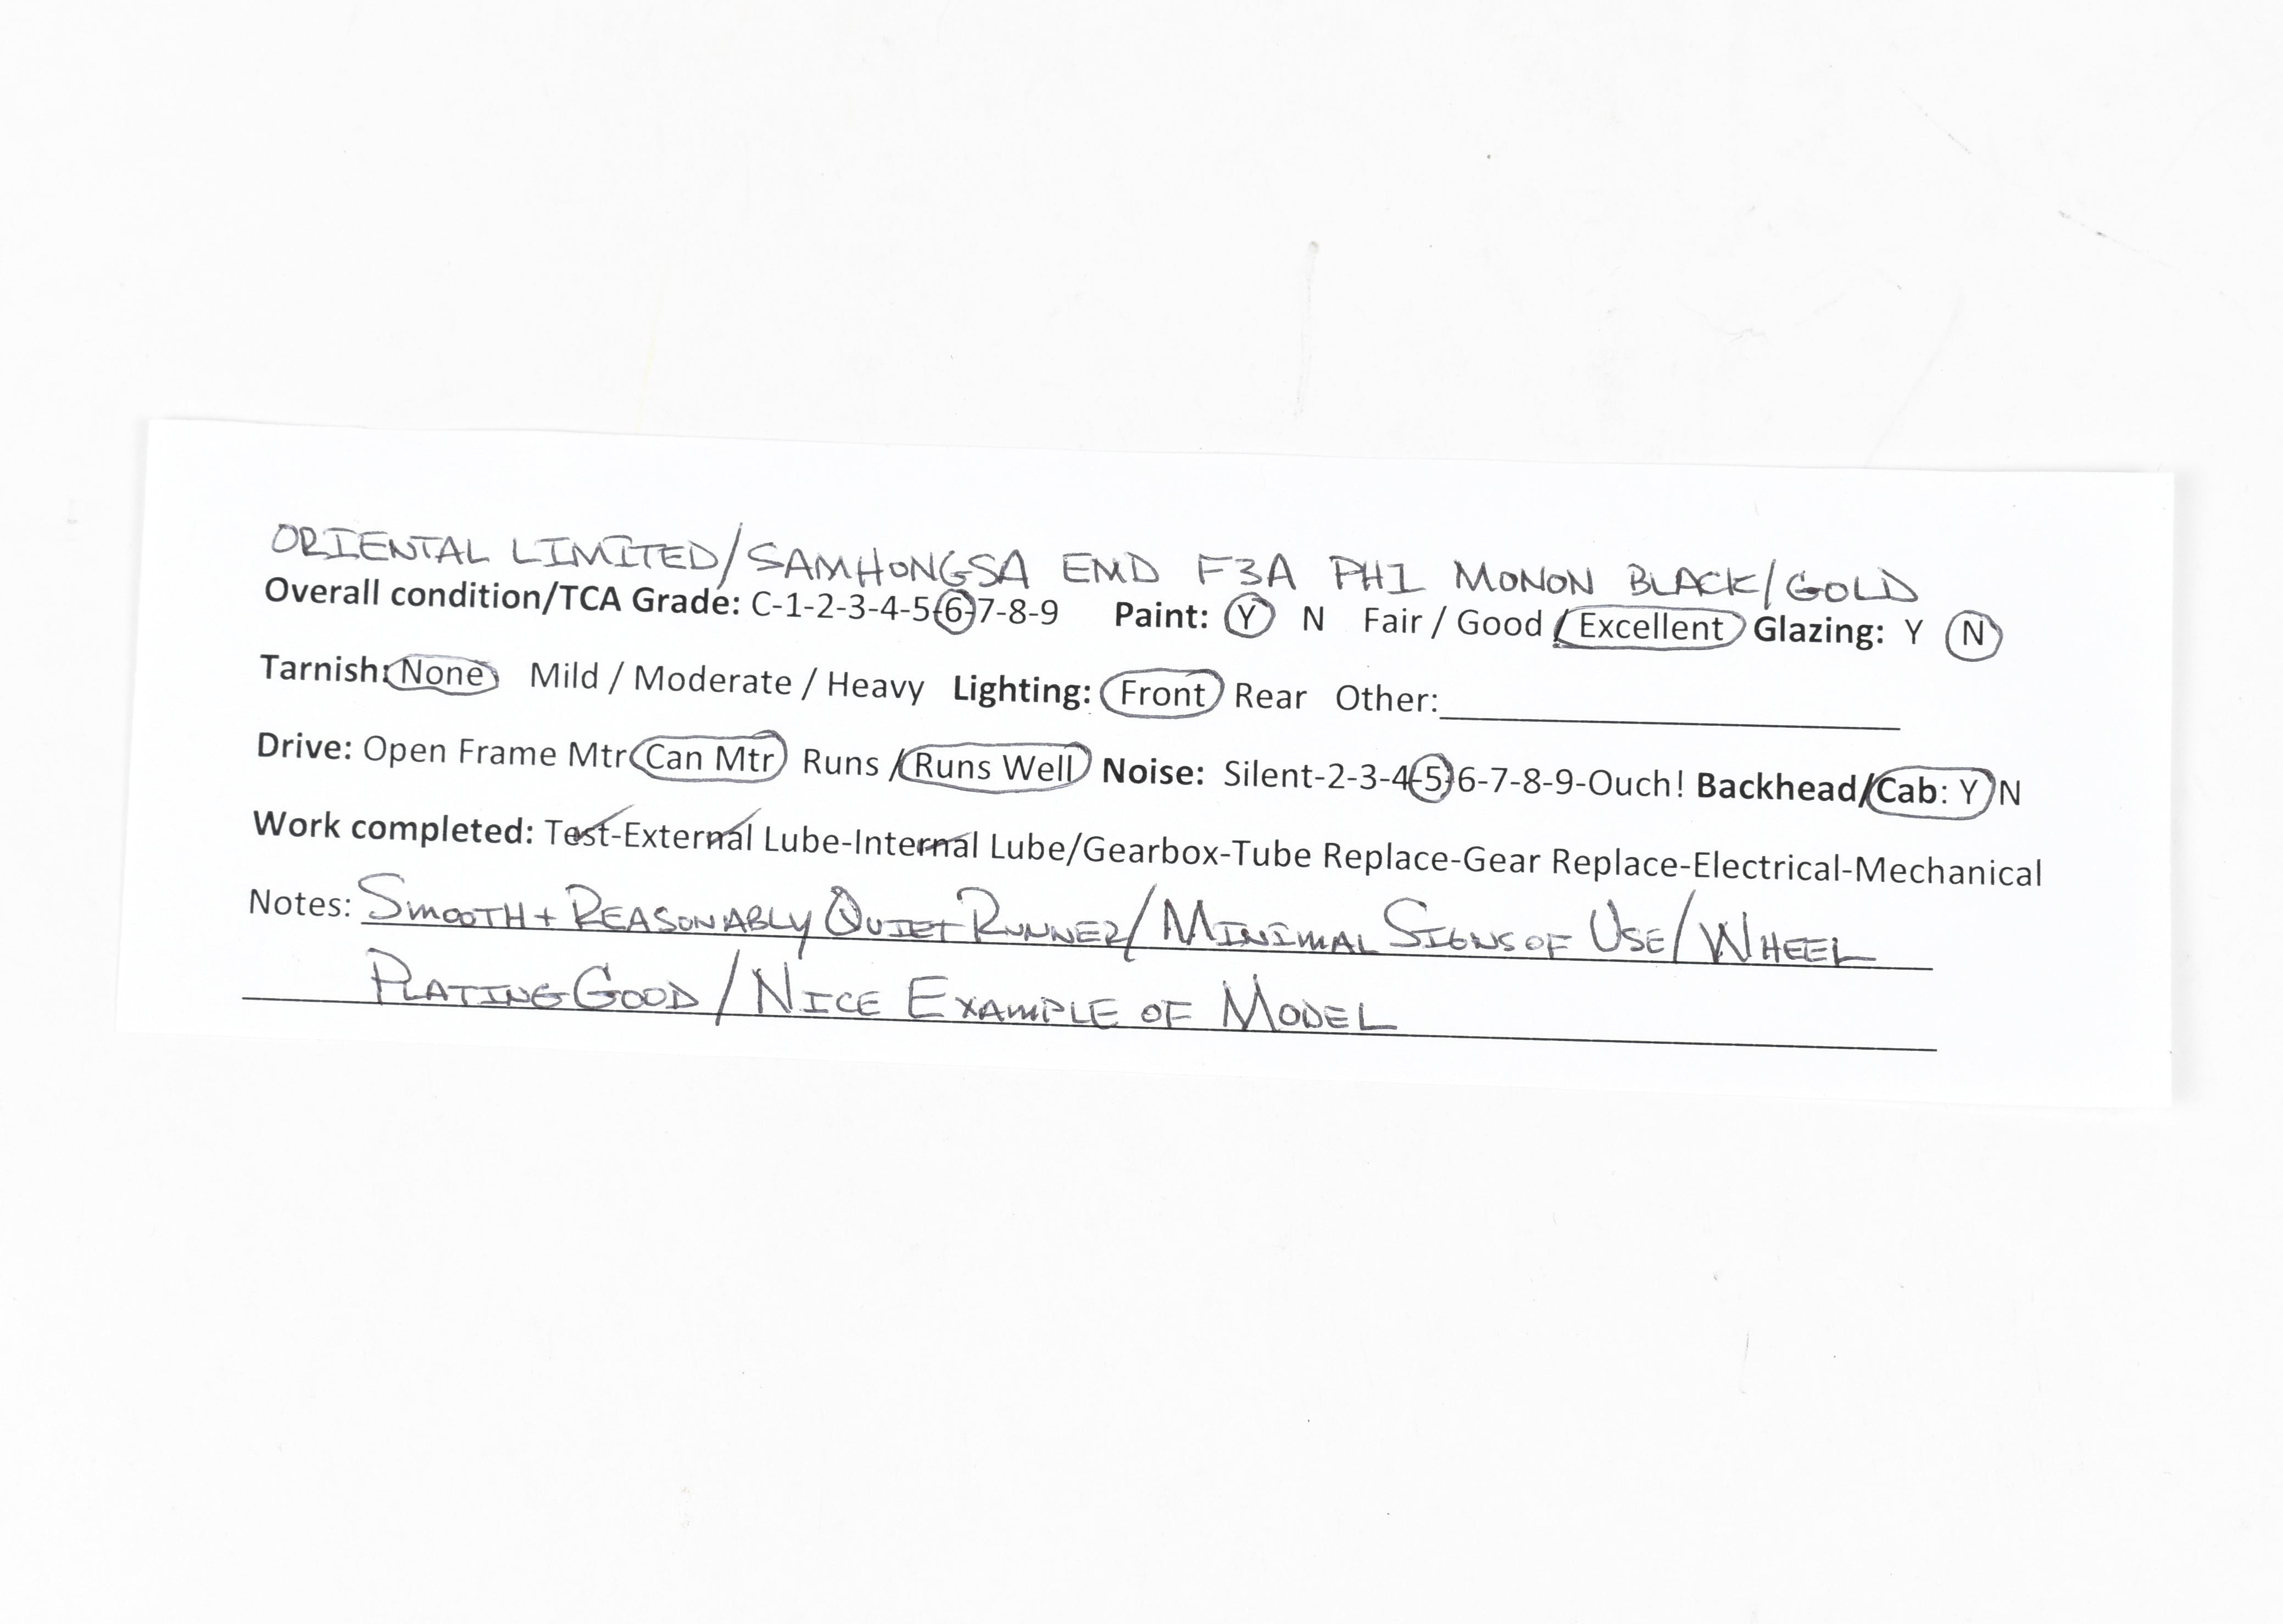 ORIENTAL LIMITED/SAMHONGSA EMD F3A PH1 MONON BLACK/GOLD
Overall condition/TCA Grade: C-1-2-3-4-5-6-7-8-9 Paint: Y N Fair / Good / Excellent Glazing: Y N
Tarnish: None Mild / Moderate / Heavy Lighting: Front Rear Other:
Drive: Open Frame Mtr Can Mtr Runs / Runs Well Noise: Silent-2-3-4-5-6-7-8-9-Ouch! Backhead/Cab: Y N
Work completed: Test-External Lube-Internal Lube/Gearbox-Tube Replace-Gear Replace-Electrical-Mechanical
Notes: SMOOTH + REASONABLY QUIET RUNNER/MINIMAL SIGNS OF USE/WHEEL
PLATING GOOD/NICE EXAMPLE OF MODEL